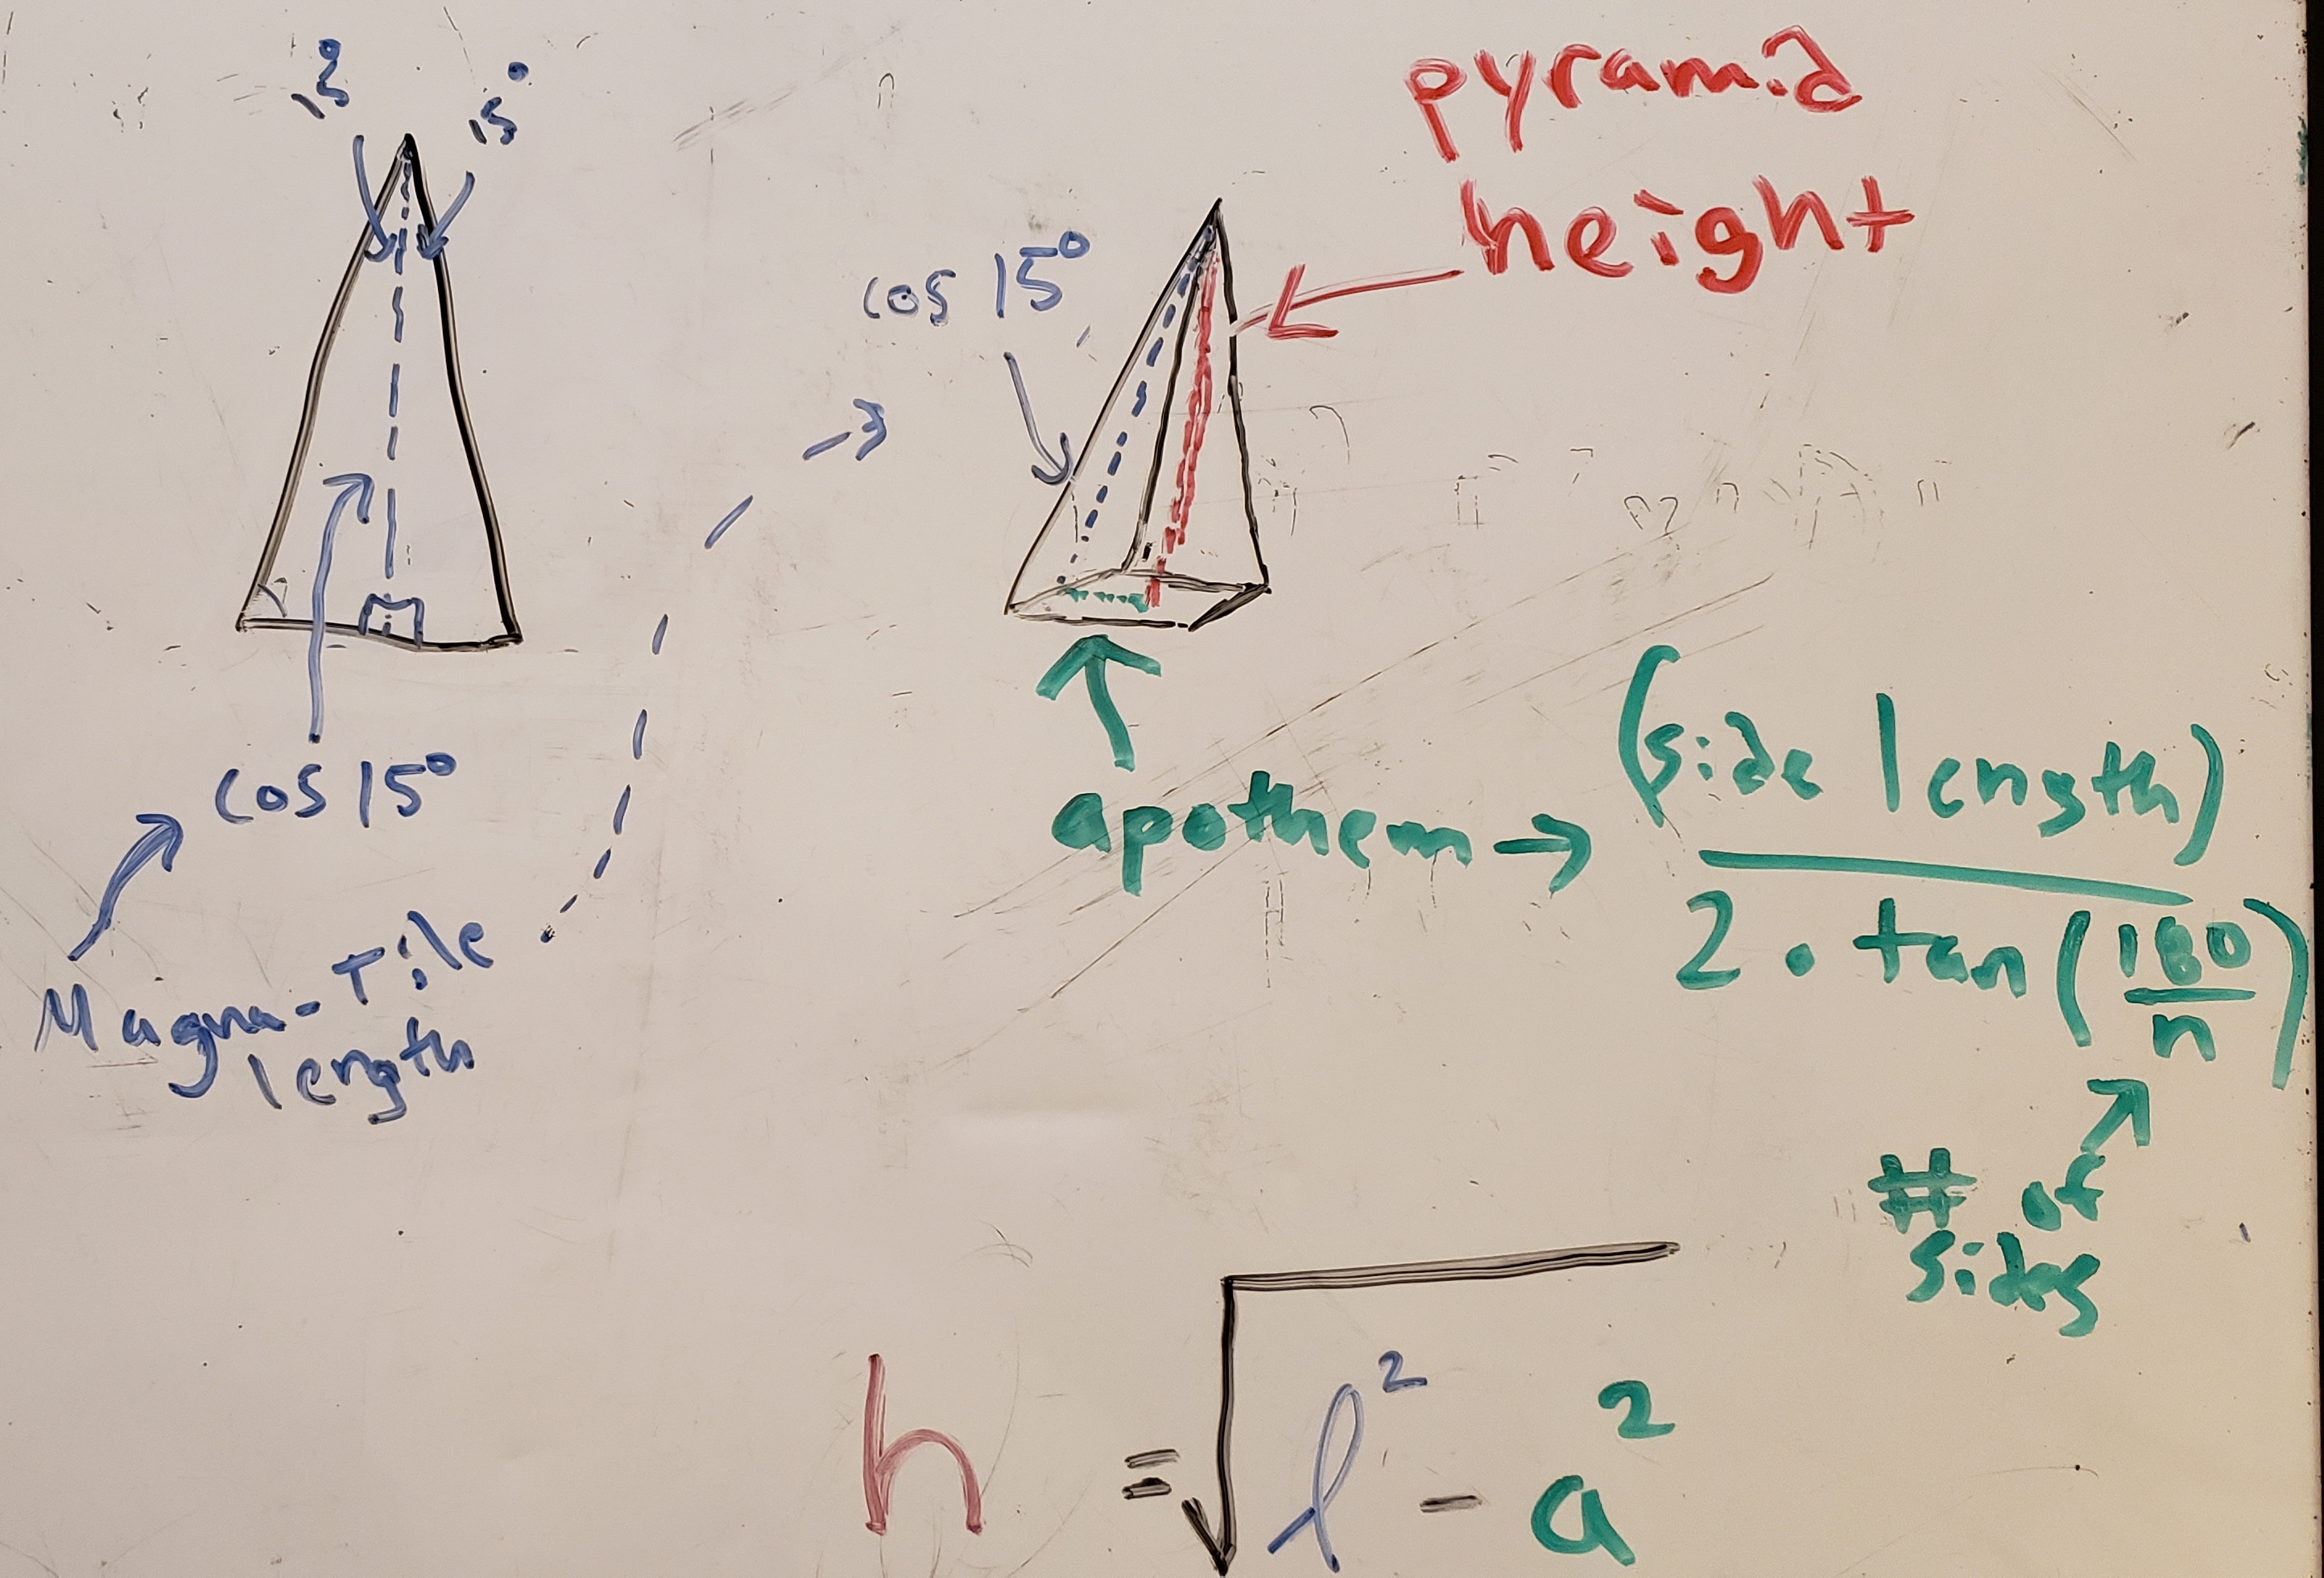 15°
15°
cos 15°
Magna-Tile
length
cos 15°
pyramid
height
apothem → (side length)
2 • tan (180
n)
# of
sides
h = √l² - a²